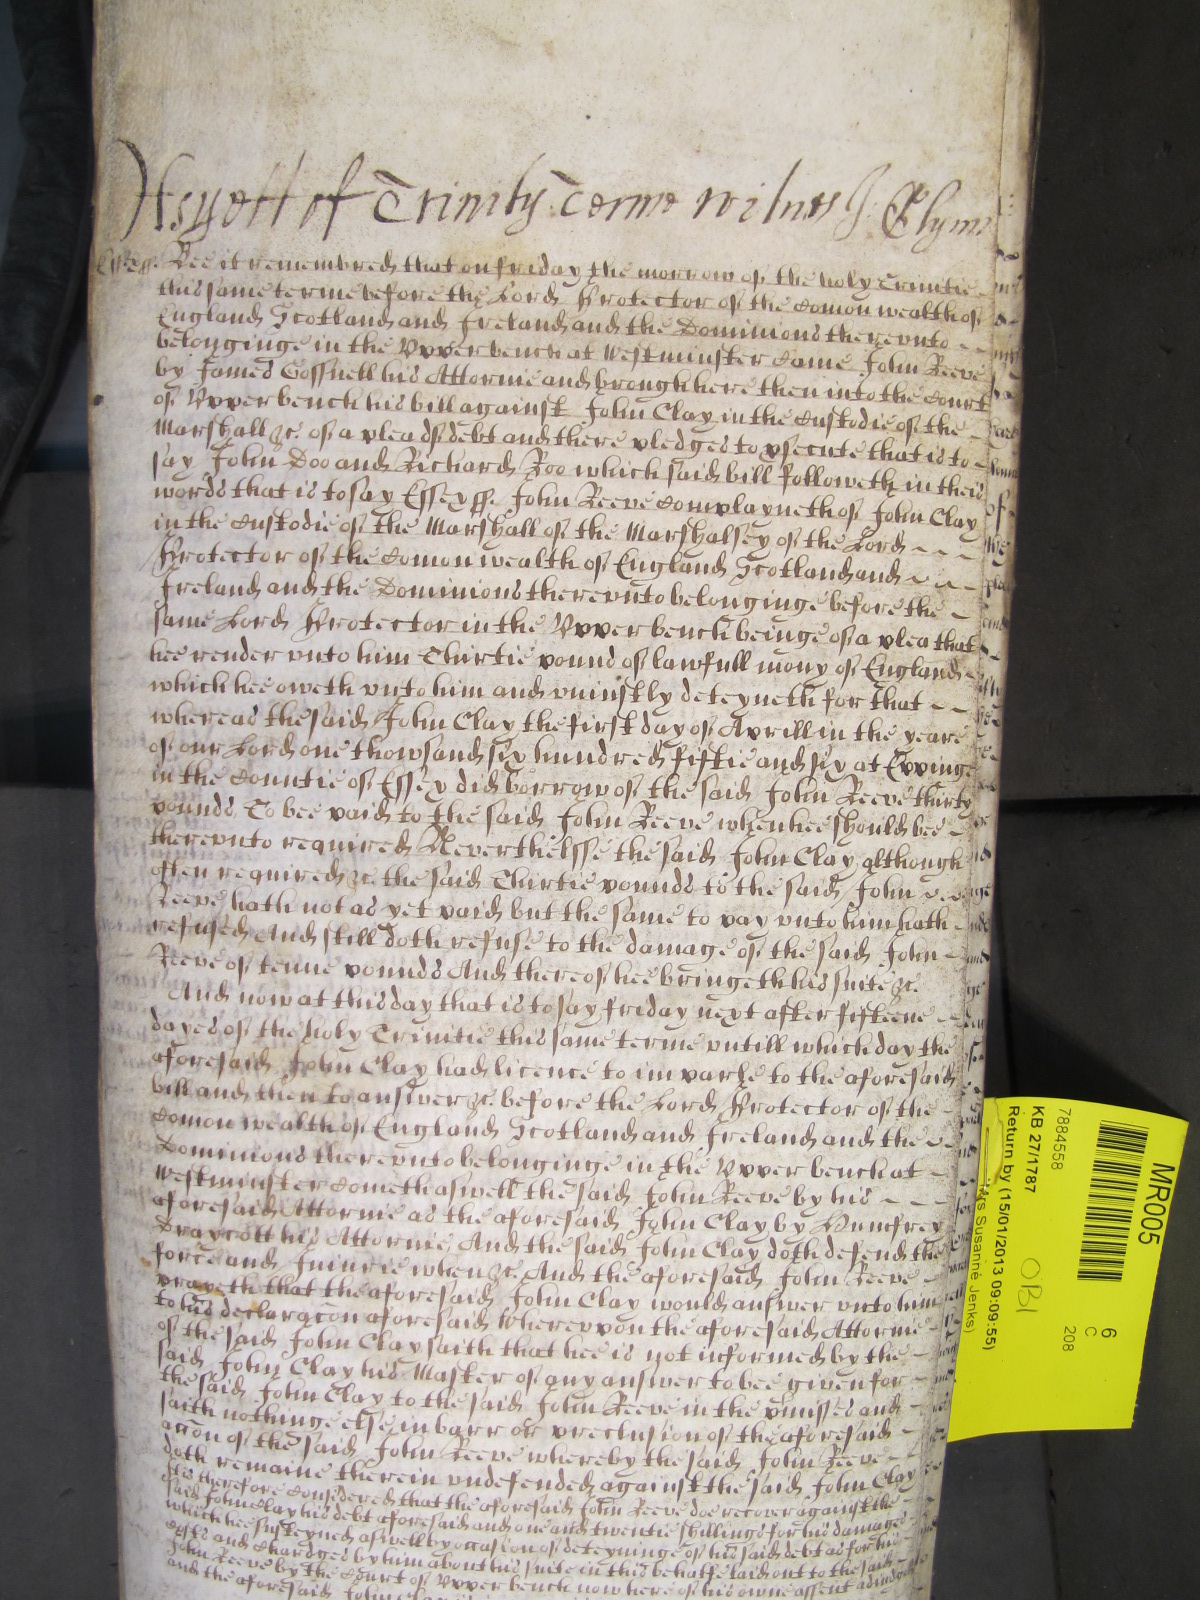 As yett of Trinity Terme witnes J: Glynn
Essex ss. Bee it remembred that on friday the morrow of the holy Trinitie
this same terme before the Lord Protector of the Comon wealth of
England Scotland and Ireland and the Dominions therevnto
belonginge in the Vpper bench at Westminster Came John Reeve
by James Gossnell his Attornie and brought here then into the Court
of Vpper bench his bill against John Clay in the Custodie of the
Marshall &c. of a plea of debt and there pledges to psecute that is to
say John Doo and Richard Roo which said bill followeth in theis
words that is to say Essex ss. John Reeve Complayneth of John Clay
in the Custodie of the Marshall of the Marshalsey of the Lord
Protector of the Comon wealth of England Scotland and
Ireland and the Dominions therevnto belonginge before the
same Lord Protector in the Vpper bench beinge of a plea that
hee render vnto him Thirtie pound of lawfull mony of England
which hee oweth vnto him and vniustly deteyneth for that
whereas the said John Clay the first day of Aprill in the yeare
of our Lord one thowsand six hundred fiftie and six at Eppinge
in the Countie of Essex did borrow of the said John Reeve thirty
pounds To bee paid to the said John Reeve when hee should bee
therevnto required Neverthelsse the said John Clay although
often required &c. the said Thirtie pounds to the said John
Reeve hath not as yet paid but the same to pay vnto him hath
refused And still doth refuse to the damage of the said John
Reeve of tenne pounds And thereof hee bringeth his suite &c.
And now at this day that is to say friday next after fifteene
dayes of the holy Trinitie this same terme vntill which day the
aforesaid John Clay had licence to imparle to the aforesaid
bill and then to answer &c. before the Lord Protector of the
Comon wealth of England Scotland and Ireland and the
Dominions therevnto belonginge in the Vpper bench at
Westminster Cometh aswell the said John Reeve by his
aforesaid Attornie as the aforesaid John Clay by Humfrey
Draycott his Attornie And the said John Clay doth defend the
force and Iniurie when &c. And the aforesaid John Reeve
prayeth that the aforesaid John Clay would answer vnto him
to his declaracon aforesaid Wherevpon the aforesaid Attornie
of the said John Clay saith that hee is not informed by the
said John Clay his Master of any answer to bee given for
the said John Clay to the said John Reeve in the pmisses and
saith nothinge else in barr or preclusion of the aforesaid
accon of the said John Reeve whereby the said John Reeve
doth remaine therein vndefended against the said John Clay
It is therefore Considered that the aforesaid John Reeve doe recover against the
said John Clay his debt aforesaid and one and twentie shillings for his damages
which hee susteyned aswell by occasion of deteyninge of his said debt as for his
Costs and Chardges by him about his suite in this behalfe laid out to the said
John Reeve by the Court of Vpper bench now here of his owne assent adiudged
and the aforesaid John Clay
MR005
6
C
208
7884558
KB 27/1787
OBI
Return by (15/01/2013 09:09:55)
Susanne Jenks)